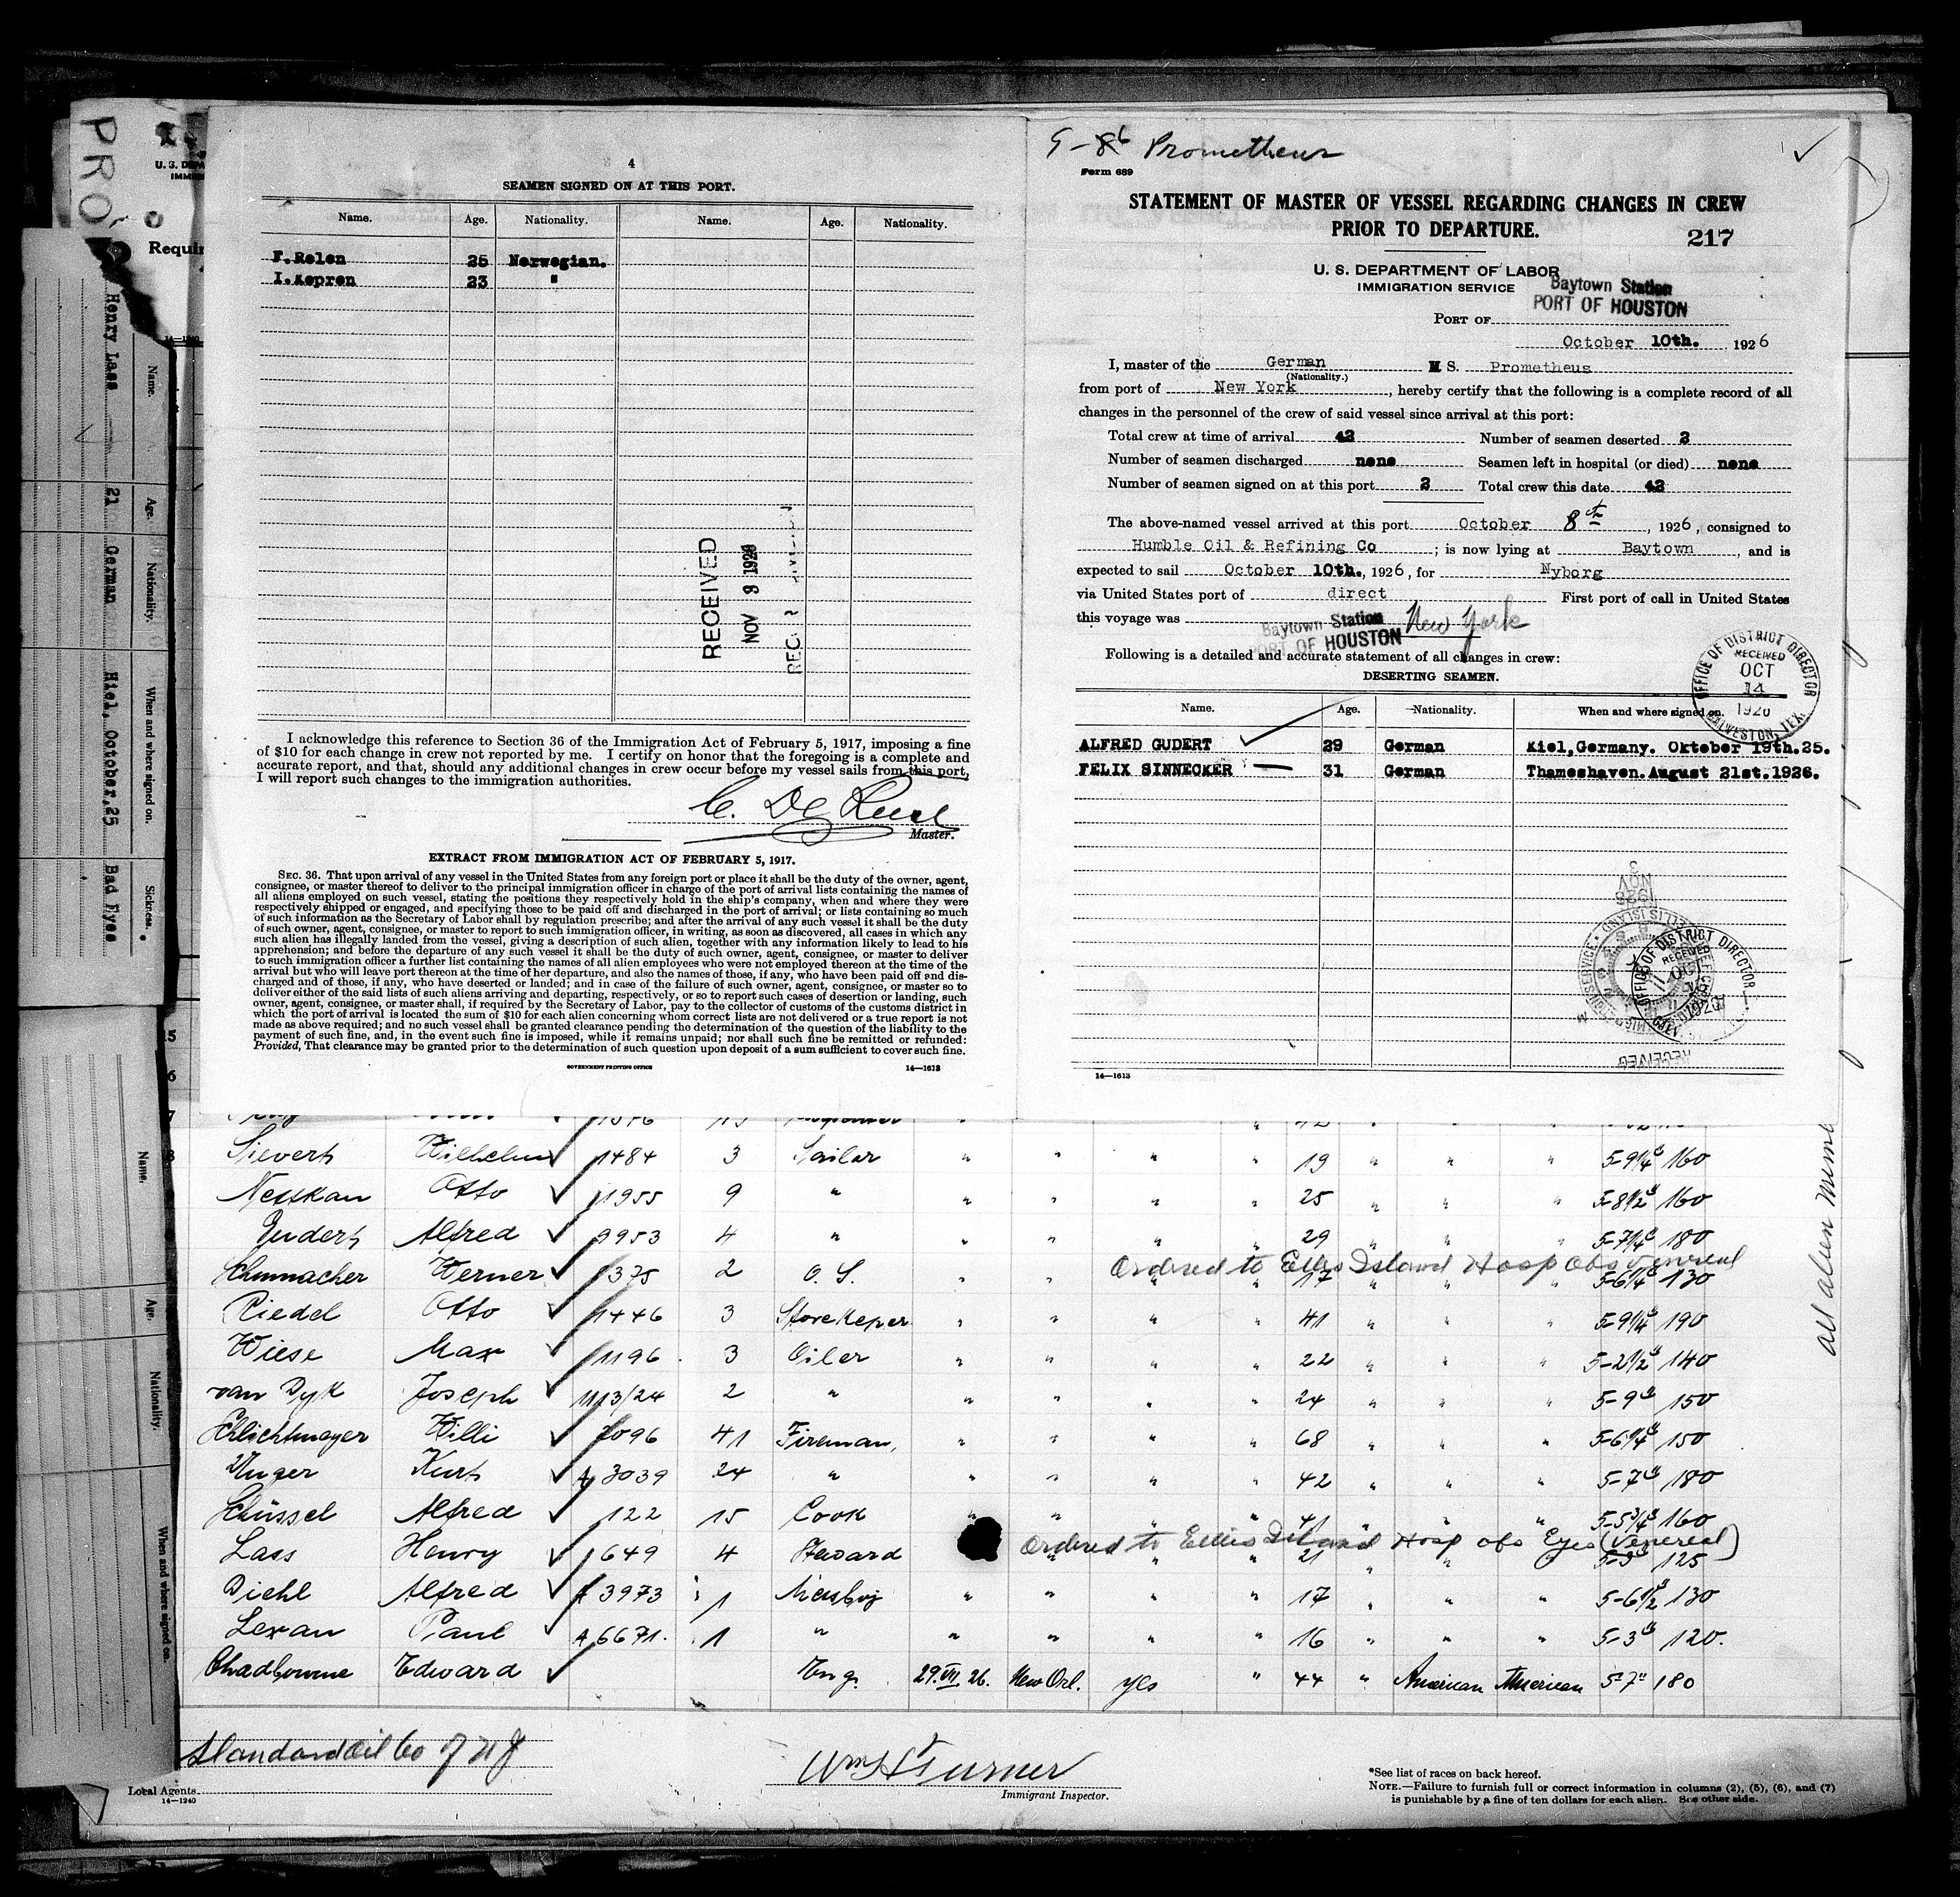 PRO
U. S. DEPA
IMM
Requir
14-1240
Name.
Age.
Nationality.
When and where signed on.
Sickness.
Henry Lass 21 German Kiel, October,25 Bad Eyes
4
SEAMEN SIGNED ON AT THIS PORT.
Name. Age. Nationality. Name. Age. Nationality.
F.Rolen 25 Norwegian.
23 "
RECEIVED
NOV 9 1926
I acknowledge this reference to Section 36 of the Immigration Act of February 5, 1917, imposing a fine
of $10 for each change in crew not reported by me. I certify on honor that the foregoing is a complete and
accurate report, and that, should any additional changes in crew occur before my vessel sails from this port,
I will report such changes to the immigration authorities.
Master.
EXTRACT FROM IMMIGRATION ACT OF FEBRUARY 5, 1917.
SEC. 36. That upon arrival of any vessel in the United States from any foreign port or place it shall be the duty of the owner, agent,
consignee, or master thereof to deliver to the principal immigration officer in charge of the port of arrival lists containing the names of
all aliens employed on such vessel, stating the positions they respectively hold in the ship's company, when and where they were
respectively shipped or engaged, and specifying those to be paid off and discharged in the port of arrival; or lists containing so much
of such information as the Secretary of Labor shall by regulation prescribe; and after the arrival of any such vessel it shall be the duty
of such owner, agent, consignee, or master to report to such immigration officer, in writing, as soon as discovered, all cases in which any
such alien has illegally landed from the vessel, giving a description of such alien, together with any information likely to lead to his
apprehension; and before the departure of any such vessel it shall be the duty of such owner, agent, consignee, or master to deliver
to such immigration officer a further list containing the names of all alien employees who were not employed thereon at the time of the
arrival but who will leave port thereon at the time of her departure, and also the names of those, if any, who have been paid off and dis-
charged and of those, if any, who have deserted or landed; and in case of the failure of such owner, agent, consignee, or master so to
deliver either of the said lists of such aliens arriving and departing, respectively, or so to report such cases of desertion or landing, such
owner, agent, consignee, or master shall, if required by the Secretary of Labor, pay to the collector of customs of the customs district in
which the port of arrival is located the sum of $10 for each alien concerning whom correct lists are not delivered or a true report is not
made as above required; and no such vessel shall be granted clearance pending the determination of the question of the liability to the
payment of such fine, and, in the event such fine is imposed, while it remains unpaid; nor shall such fine be remitted or refunded:
Provided, That clearance may be granted prior to the determination of such question upon deposit of a sum sufficient to cover such fine.
GOVERNMENT PRINTING OFFICE 14—1613
Prometheus
Form 689
STATEMENT OF MASTER OF VESSEL REGARDING CHANGES IN CREW
PRIOR TO DEPARTURE.
217
U. S. DEPARTMENT OF LABOR
IMMIGRATION SERVICE
Baytown Station
PORT OF HOUSTON
PORT OF
October 10th. , 1926
I, master of the German M S. Prometheus
(Nationality.)
from port of New York , hereby certify that the following is a complete record of all
changes in the personnel of the crew of said vessel since arrival at this port:
Total crew at time of arrival 42 Number of seamen deserted 2
Number of seamen discharged none Seamen left in hospital (or died) none
Number of seamen signed on at this port 2 Total crew this date 42
The above-named vessel arrived at this port October 8th , 1926, consigned to
Humble Oil & Refining Co ; is now lying at Baytown , and is
expected to sail October 10th., 1926, for Nyborg
via United States port of direct First port of call in United States
this voyage was New York
Baytown Station
PORT OF HOUSTON
Following is a detailed and accurate statement of all changes in crew:
DESERTING SEAMEN.
OFFICE OF DISTRICT DIRECTOR
RECEIVED
OCT
14
1926
GALVESTON, TEX.
Name. Age. Nationality. When and where signed on.
ALFRED GUDERT 29 German Kiel,Germany. Oktober 19th.25.
FELIX SINNECKER 31 German Thameshaven.August 21st.1926.
NOV
1926
OFFICE OF DISTRICT DIRECTOR
RECEIVED
OCT
RECEIVED
14—1613
Sievert Wilhelm 1484 3 Sailor " " " " 19 " " " 5-9¼ 160
Otto 1955 9 " " " " " 25 " " " 5-8½ 160
Gudert Alfred 9953 4 " " " " " 29 " " " 5-7¼ 180
Ordered to Ellis Island Hosp obs Venereal
Schumacher Werner 1375 2 O. S. " " " " 17 " " " 5-6¼ 130
Riedel Otto 1446 3 Storekeper " " " " 41 " " " 5-9¼ 190
Wiese Max 1196 3 Oiler " " " " 22 " " " 5-2½ 140
van Dyk Joseph 1113/24 2 " " " " " 24 " " " 5-9 150
Schlichtmayer Willi 7096 41 Fireman, " " " " 68 " " " 5-6¼ 150
Unger Kurt A 3039 24 " " " " " 42 " " " 5-7 180
Schüssel Alfred 122 15 Cook " " " " 41 " " " 5-5¾ 160
Ordered to Ellis Island Hosp obs Eyes (Venereal)
Lass Henry 1649 4 Steward " " " 21 " " " 125
Diehl Alfred A 3973 1 Messboy " " " " 17 " " " 5-6½ 130
Lexan Paul A 6671. 1 " " " " " 16 " " " 5-3 120.
Chadbourne Edward Eng. 29.VII.26. New Orl. yes " 44 " American American 5-7" 180
all alien
Standard Oil Co of N J
Local Agents
14—1240
Wm H Turner
Immigrant Inspector.
*See list of races on back hereof.
NOTE.—Failure to furnish full or correct information in columns (2), (5), (6), and (7)
is punishable by a fine of ten dollars for each alien. See other side.
Name.
Age.
Nationality.
When and where signed on.